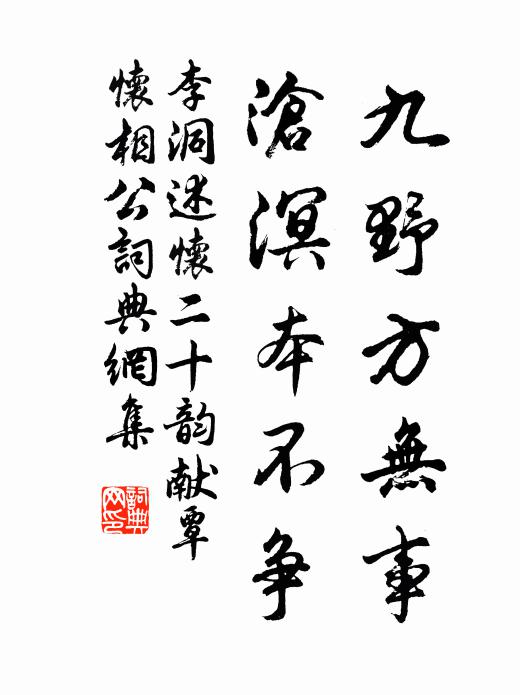 九野方無事
滄溟本不争
李洞述懷二十韵献覃
懷相公詞典網集
詞典
网印